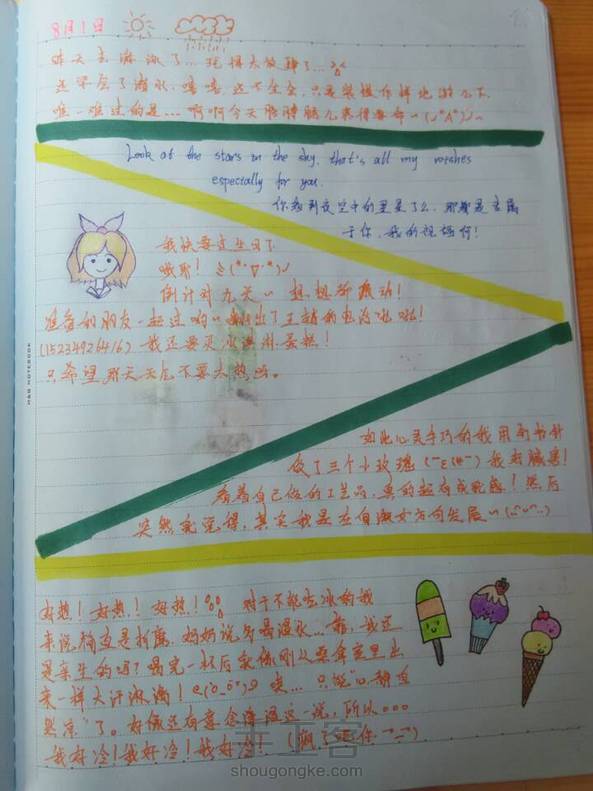 8月1日
昨天去游泳了…玩得太放肆了…
还学会了潜水,嘻嘻,还不全会,只是装模作样地游几下
唯一难过的是…啊啊今天胳膊腿儿疼得要命~
Look at the stars in the sky, that's all my wishes
especially for you.
你看到夜空中的星星了么,那都是专属
于你,我的祝福何!
我快要过生日了
哦耶!
倒计时九天~想想都激动!
准备和朋友一起过哟~
(15234926416)我还要买冰淇淋蛋糕!
只希望那天天气不要太热
如此心灵手巧的我用
做了三个小玫瑰 我好臭美!
看着自己做的工艺品,真的超有成就感!然后
突然就觉得,其实我是在向淑女方向发展~
好热!好热!好热! 对于不能吃冰的我
来说简直是折磨.妈妈说多喝温水…靠,我还
是亲生的吗?喝完一杯后就像刚从桑拿室里出
来一样大汗淋漓! 唉…只能"心静自
然凉"了。好像还有意念降温这一说,所以。。。
我好冷!我好冷!我好冷!
H&B NOTEBOOK
手工客
shougongke.com